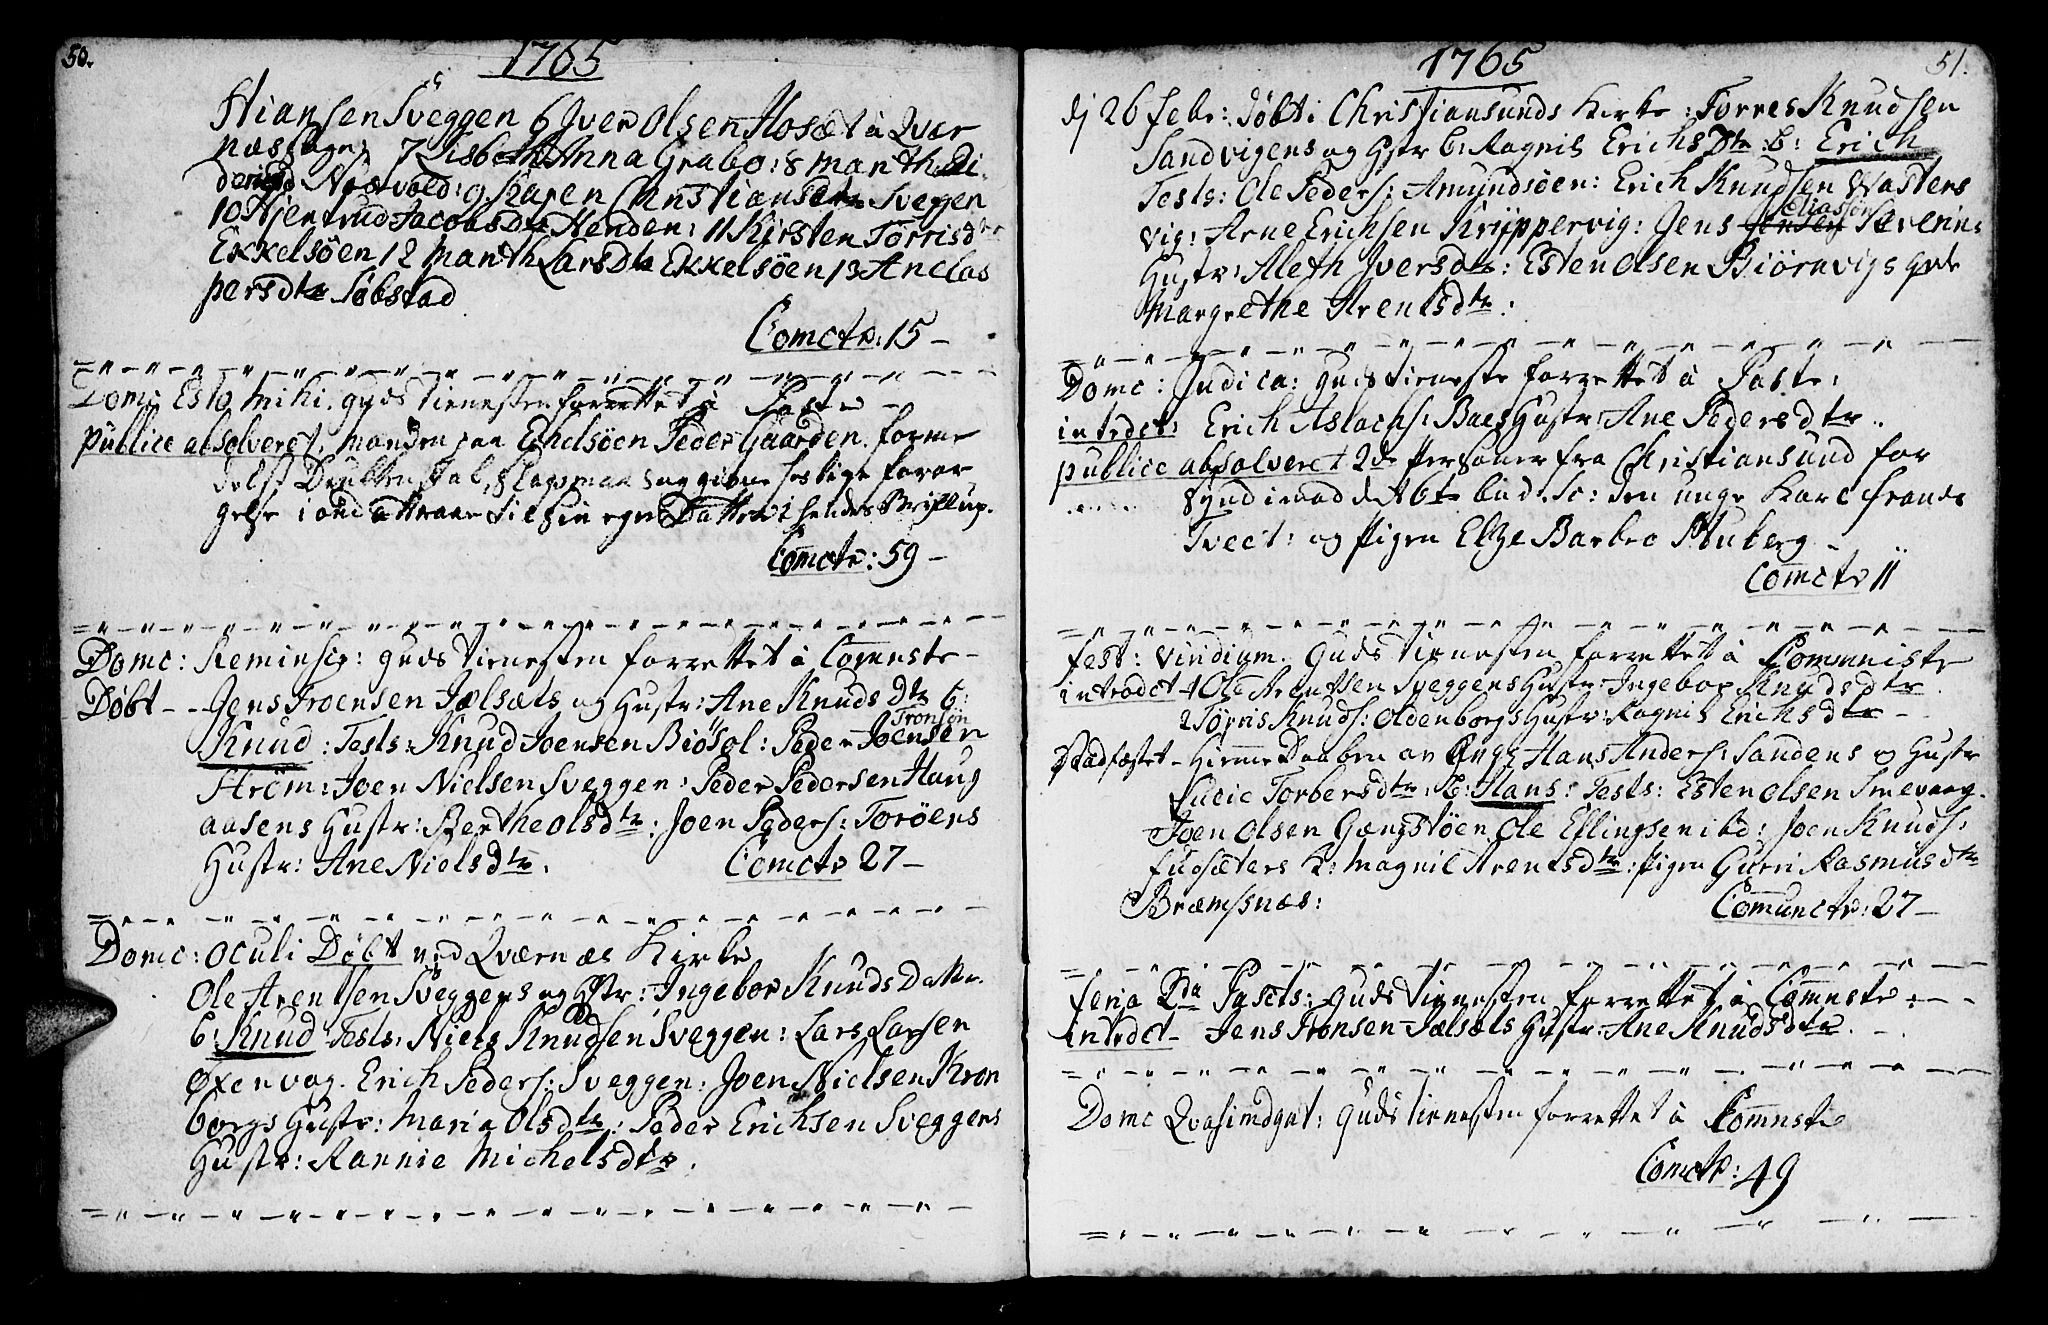 50.
1765
Hiansen Sveggen 6 Iver Olsen Hosæt à Qvær
næs Lage: 7 Lisbeth Anna Grabo: 8 Marith Di
derich Nævold: 9 Karen Christiansdtr Sveggen
10 Hjertrud Jacobsdtr Henden: 11 Kirsten Torrisdtr
Ekkelsöen 12 Marith Larsdtr Ekkelsöen 13 Ane Las
persdtr Söbstad
Comctr: 15 –
Dom: Esto mihi. Guds tienesten forrettet à
publice absolveret, manden paa Ekelsöen Peder Gaarden. forme
delst
gelse i til sin egen Datter i hendes Bryllup.
Comctr: 59 –
Domc: Reminsc: Guds tienesten forrettet à Comnste –
Döbt – – Jens Troensen Jælsæts og Hustr: Ane Knuds Dtr b:
Tronsön
Knud: Tests: Knud Joensen Biösol: Peder Joensen
Ström: Joen Nielsen Sveggen: Peder Pedersen Haug
aasens Hustr: Berthe Olsdtr: Joen Peders: Toröens
Hustr: Ane Nielsdtr. Comctr 27 –
Domc: Oculi Döbt ved Qværnæs Kirke
Ole Arentsen Sveggens og Hstr: Ingebor Knuds Datter.
b: Knud Tests: Niels Knudsen Sveggen: Lars Larsen
Oxenvog. Erich Peders: Sveggen: Joen Nielsen Kron
borgs Hustr: Maria Olsdtr: Peder Erichsen Sveggens
Hustr: Rannie Michelsdtr.
1765
51.
dj 26 febr: döbt i Christiansunds Kirke: Torres Knudsen
Sandvigens og Hstr b: Ragnil Erichs Dtr: b: Erich
Tests: Ole Peders: Amundsöen: Erich Knudsen Vasters
Eliassön
vig: Arne Erichsen Krippervig: Jens Jensen Severins
Hustr: Aleth Iversdtr: Esten Olsen Biörnvigs qvde
Margrethe Arentsdtr:
Domc: Judica: Guds tieneste forrettet à
introdct: Erich Aslachs: Baes Hustr: Ane Pedersdtr..
publice absolveret 2de Personer fra Christiansund for
synd imod det 6te bud. Sc: den unge Karl frands
Tvect: og Pigen Elze Barbro Stuberg –
Comctr 11
fest: Viridium. Guds tienesten forrettet à Comuniste
introdct 1 Ole Arentsen Sveggens Hustr: Ingebor Knudsdtr.
2 Törris Knuds: Oldenborgs Hustr: Ragnil Erichsdtr –
Stadfæstet – Hiemme Daaben av Hans Anders: Sandens og Hustr
Lucie Torbersdtr: b: Hans: Tests: Esten Olsen Smevaag.
Joen Olsen Gængstöen Ole Eflingsen ibd: Joen Knuds:
fudsæters K: Magnil Arentsdtr: Pigen Gurri Rasmusdtr
Bræmsnæs:
Comunctr: 27 –
feria 2da Pascts: Guds tienesten forrettet à Comnste
introdct – Jens Tronsen Jælsæts Hustr: Ane Knudsdtr.
Domc Qvasimdgnt: Guds tienesten forrettet à Comnste
Comctr: 49